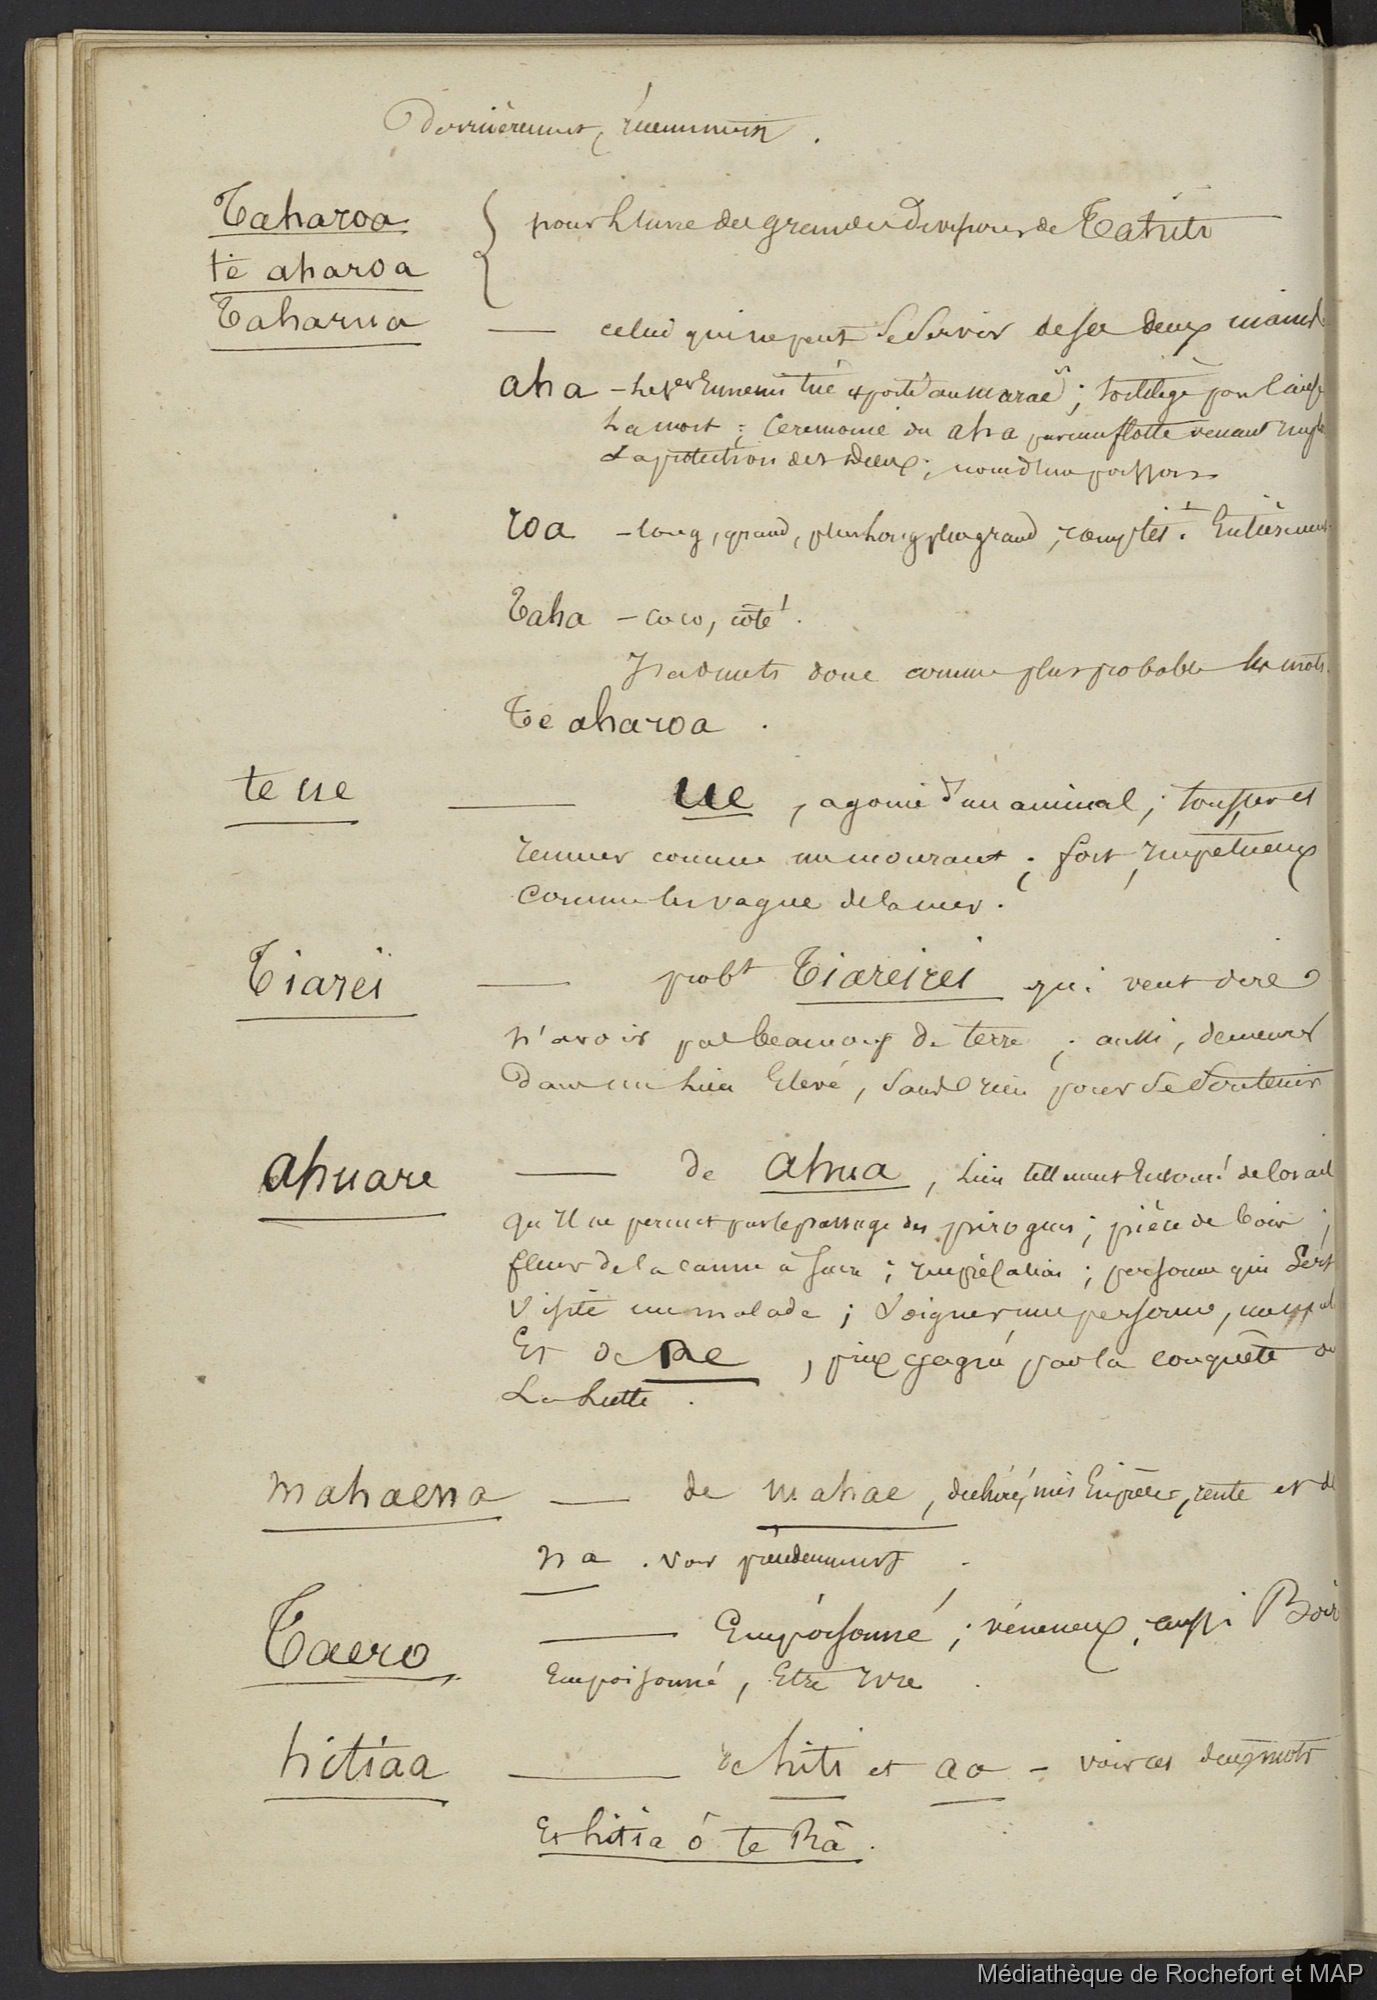 Dernièrement, récemment.
Taharoa
te aharoa
pour l'une des grandes divisions de Tahiti
Taharua — celui qui ne peut se servir de ses deux mains
aha — ennemi tué et porté au marae ; sortilège pour
la mort ; cérémonie du aha par une flotte venant
la protection des dieux ; nom d'un poisson
roa — long, grand, plus long, plus grand ; complet. Entièrement
Taha — coco, côté.
J'admets donc comme plus probable les mots
Te aharoa.
te ue — ue, agonie d'un animal ; tousser et
remuer comme un mourant ; fort, impétueux
comme les vagues de la mer.
Tiarei — probt Tiareirei qui veut dire
n'avoir pas beaucoup de terre ; aussi, demeurer
dans un lieu élevé, sans rien pour se soutenir
ahuare — de ahua, lieu tellement entouré de corail
qu'il ne permet pas le passage des pirogues ; pièce de bois ;
fleur de la canne à sucre ; personne qui sert
visite un malade ; soigner une personne,
Et de Re, prix gagné par la conquête ou
La lutte.
mahaena — de mahae, déchiré, mis en pièces, et de
na. voir précédemment.
Taero — Empoisonné ; vénéneux, aussi Boire
empoisonné, Etre ivre.
hitiaa — de hiti et aa — voir ces deux mots
Et hitia ó te Râ.
Médiathèque de Rochefort et MAP